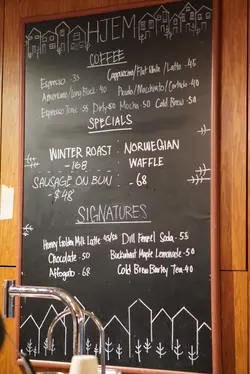 HJEM
COFFEE
Espresso · 35 Cappuccino/Flat White/Latte · 45
Americano/Long Black · 40 Piccolo/Macchiato/Cortado · 40
Espresso Tonic · 55 Dirty · 50 Mocha · 50 Cold Brew · 50
SPECIALS
WINTER ROAST NORWEGIAN
-168 WAFFLE
SAUSAGE ON BUN - 68
- $48
SIGNATURES
Honey Golden Milk Latte · 45/55 Dill Fennel Soda · 55
Chocolate · 50 Buckwheat Maple Lemonade · 50
Affogato · 68 Cold Brew Barley Tea · 40